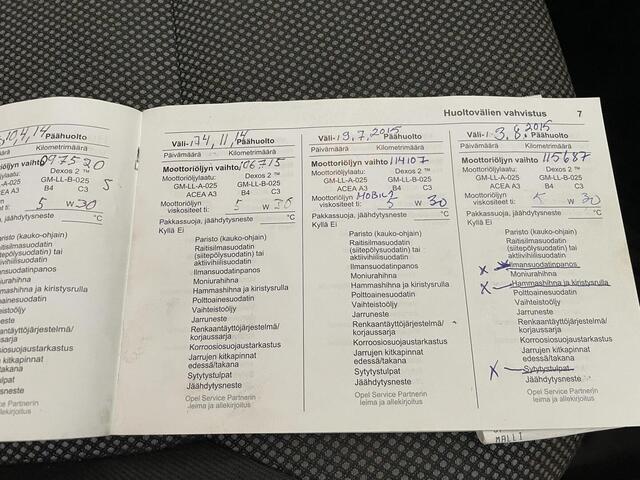 Huoltovälien vahvistus 7
10,4,14
Päähuolto
Kilometrimäärä
öljyn vaihto 097520
öljylaatu: Dexos 2 ™
LL-A-025 GM-LL-B-025
ACEA A3 B4 C3 5
viskositeet ti: 5 W 30
suoja, jäähdytysneste °C
Paristo (kauko-ohjain)
Raitisilmasuodatin
(siitepölysuodatin) tai
aktiivihiilisuodatin
Ilmansuodatinpanos
Moniurahihna
Hammashihna ja kiristysrulla
Polttoainesuodatin
Vaihteistoöljy
Jarruneste
Renkaantäyttöjärjestelmä/
korjaussarja
Korroosiosuojaustarkastus
Jarrujen kitkapinnat
edessä/takana
Sytytystulpat
Jäähdytysneste
Opel Service Partnerin
leima ja allekirjoitus
Väli- / 11,14 Päähuolto
Päivämäärä Kilometrimäärä
Moottoriöljyn vaihto 106715
Moottoriöljylaatu: Dexos 2 ™
GM-LL-A-025 GM-LL-B-025
ACEA A3 B4 C3
Moottoriöljyn
viskositeet ti: 5 W 30
Pakkassuoja, jäähdytysneste °C
Kyllä Ei
Paristo (kauko-ohjain)
Raitisilmasuodatin
(siitepölysuodatin) tai
aktiivihiilisuodatin
Ilmansuodatinpanos
Moniurahihna
Hammashihna ja kiristysrulla
Polttoainesuodatin
Vaihteistoöljy
Jarruneste
Renkaantäyttöjärjestelmä/
korjaussarja
Korroosiosuojaustarkastus
Jarrujen kitkapinnat
edessä/takana
Sytytystulpat
Jäähdytysneste
Opel Service Partnerin
leima ja allekirjoitus
Väli- / 9.7.2015 Päähuolto
Päivämäärä Kilometrimäärä
Moottoriöljyn vaihto 114107
Moottoriöljylaatu: Dexos 2 ™
GM-LL-A-025 GM-LL-B-025
ACEA A3 B4 C3
Moottoriöljyn MOBiL
viskositeet ti: 5 W 30
Pakkassuoja, jäähdytysneste °C
Kyllä Ei
Paristo (kauko-ohjain)
Raitisilmasuodatin
(siitepölysuodatin) tai
aktiivihiilisuodatin
Ilmansuodatinpanos
Moniurahihna
Hammashihna ja kiristysrulla
Polttoainesuodatin
Vaihteistoöljy
Jarruneste
Renkaantäyttöjärjestelmä/
korjaussarja
Korroosiosuojaustarkastus
Jarrujen kitkapinnat
edessä/takana
Sytytystulpat
Jäähdytysneste
Opel Service Partnerin
leima ja allekirjoitus
Väli- / 3,8.2015 Päähuolto
Päivämäärä Kilometrimäärä
Moottoriöljyn vaihto 115687
Moottoriöljylaatu: Dexos 2 ™
GM-LL-A-025 GM-LL-B-025
ACEA A3 B4 C3
Moottoriöljyn
viskositeet ti: 5 W 30
Pakkassuoja, jäähdytysneste °C
Kyllä Ei
Paristo (kauko-ohjain)
Raitisilmasuodatin
(siitepölysuodatin) tai
aktiivihiilisuodatin
X Ilmansuodatinpanos
Moniurahihna
X Hammashihna ja kiristysrulla
Polttoainesuodatin
Vaihteistoöljy
Jarruneste
Renkaantäyttöjärjestelmä/
korjaussarja
Korroosiosuojaustarkastus
Jarrujen kitkapinnat
edessä/takana
X Sytytystulpat
Jäähdytysneste
Opel Service Partnerin
leima ja allekirjoitus
MALLI